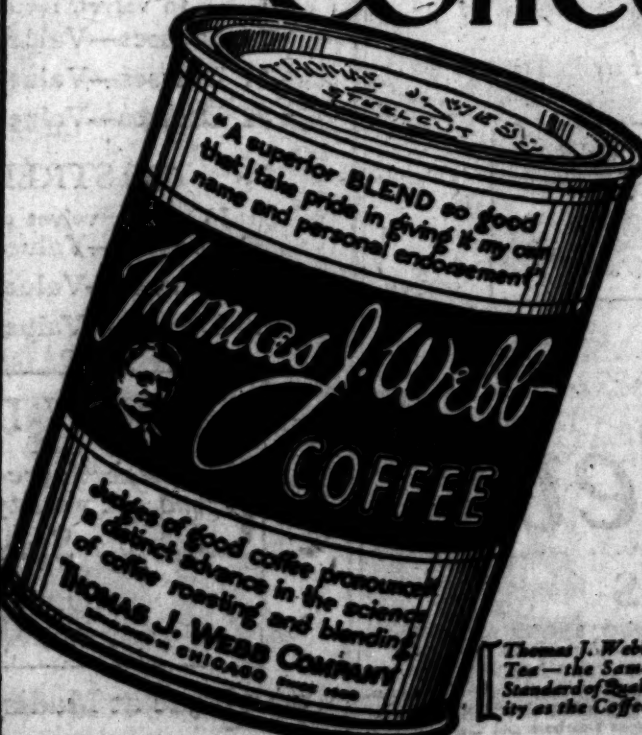 THOMAS J. WEBB
STEELCUT
"A superior BLEND so good
that I take pride in giving it my own
name and personal endorsement"
Thomas J. Webb
COFFEE
Judges of good coffee pronounce
a distinct advance in the science
of coffee roasting and blending
THOMAS J. WEBB COMPANY
CHICAGO SINCE
Thomas J. Web
Tea—the Sam
Standard of Qual-
ity as the Coffe